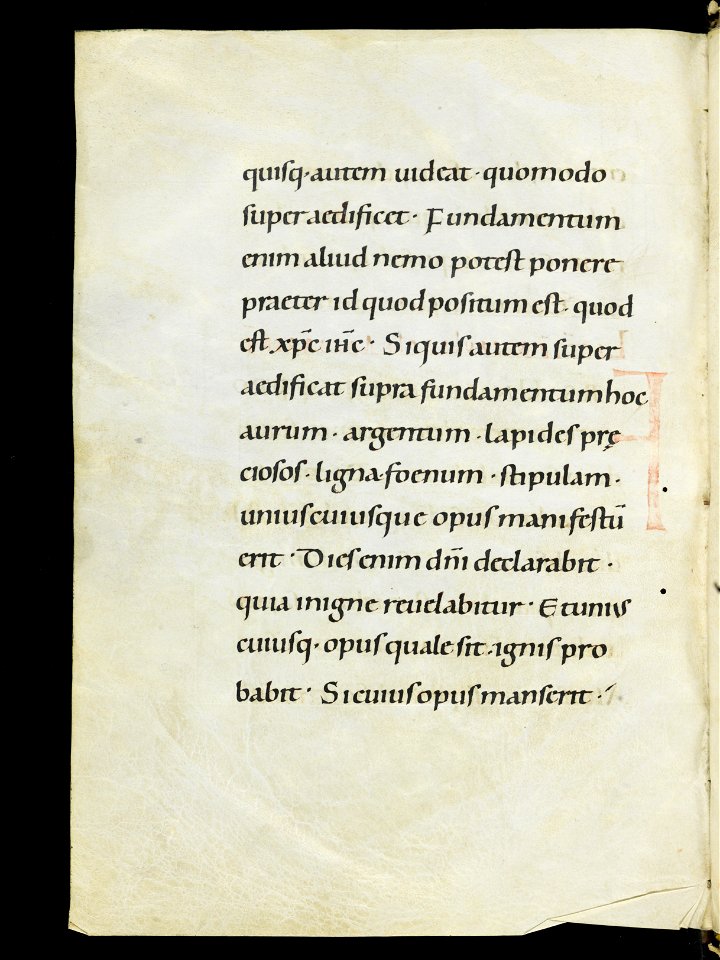 quisq·autem uideat·quomodo
superaedificet· Fundamentum
enim aliud nemo potest ponere
praeter id quod positum est· quod
est xp̅c ih̅c· Si quis autem super
aedificat supra fundamentum hoc
aurum· argentum· lapides prę
ciosos· ligna· foenum· stipulam·
uniuscuiusque opus manifestū
erit· Dies enim dn̅i declarabit·
quia in igne reuelabitur· Et unius
cuiusq· opus quale sit· ignis pro
babit· Si cuius opus manserit·